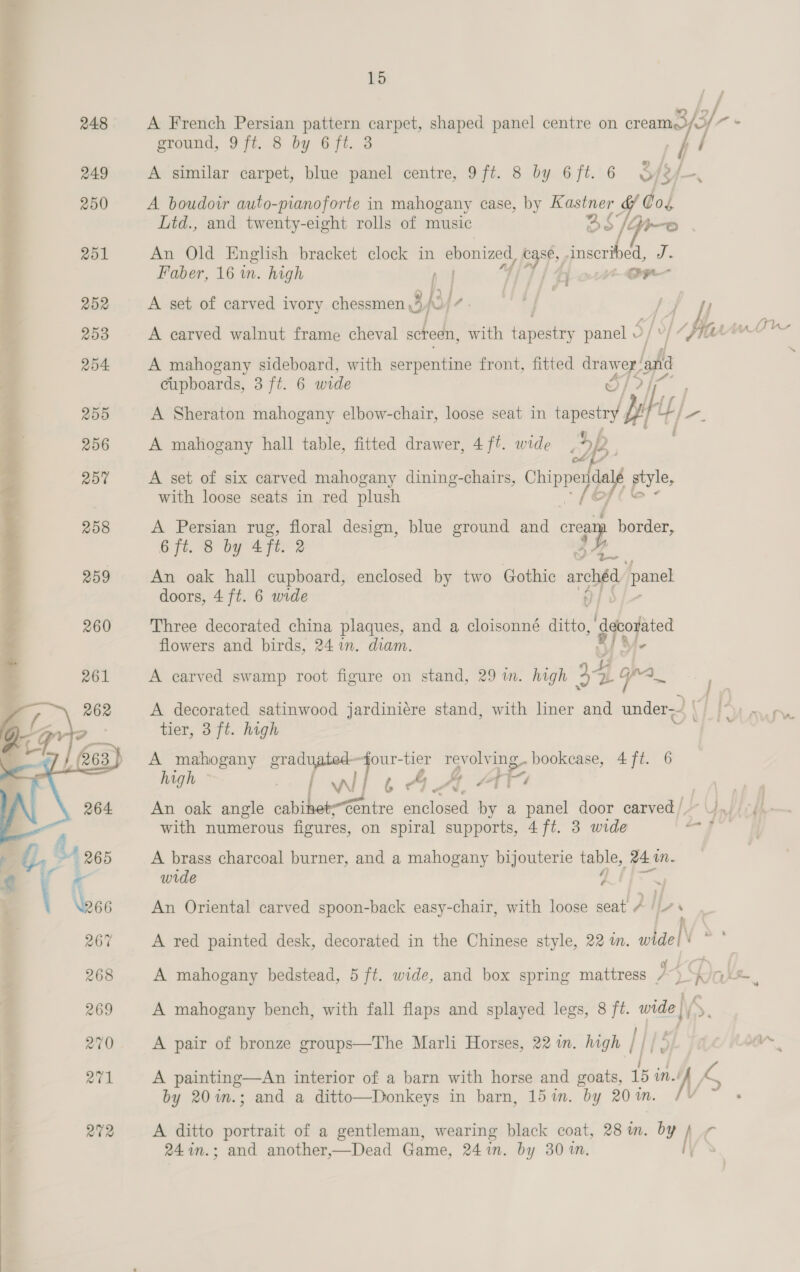 15
248 A French Persian pattern carpet, shaped panel centre on cream
ground, 9 ft. 8 by 6 ft. 3
249 A similar carpet, blue panel centre, 9 ft. 8 by 6 ft. 6
250 A boudoir auto-pianoforte in mahogany case, by Kastner & Co.
Ltd., and twenty-eight rolls of music
251 An Old English bracket clock in ebonized case, inscribed, J.
Faber, 16 in. high
252 A set of carved ivory chessmen
253 A carved walnut frame cheval screen, with tapestry panel
254 A mahogany sideboard, with serpentine front, fitted drawer and
cupboards, 3 ft. 6 wide
255 A Sheraton mahogany elbow-chair, loose seat in tapestry
256 A mahogany hall table, fitted drawer, 4 ft. wide
257 A set of six carved mahogany dining-chairs, Chippendale style,
with loose seats in red plush
258 A Persian rug, floral design, blue ground and cream border,
6 ft. 8 by 4 ft. 2
259 An oak hall cupboard, enclosed by two Gothic arched panel
doors, 4 ft. 6 wide
260 Three decorated china plaques, and a cloisonné ditto, decorated
flowers and birds, 24 in. diam.
261 A carved swamp root figure on stand, 29 in. high
262 A decorated satinwood jardinière stand, with liner and under-
tier, 3 ft. high
263 A mahogany graduated four-tier revolving bookcase, 4 ft. 6
high
264 An oak angle cabinet, centre enclosed by a panel door carved
with numerous figures, on spiral supports, 4 ft. 3 wide
265 A brass charcoal burner, and a mahogany bijouterie table, 24 in.
wide
266 An Oriental carved spoon-back easy-chair, with loose seat
267 A red painted desk, decorated in the Chinese style, 22 in. wide
268 A mahogany bedstead, 5 ft. wide, and box spring mattress
269 A mahogany bench, with fall flaps and splayed legs, 8 ft. wide
270 A pair of bronze groups—The Marli Horses, 22 in. high
271 A painting—An interior of a barn with horse and goats, 15 in.
by 20 in.; and a ditto—Donkeys in barn, 15 in. by 20 in.
272 A ditto portrait of a gentleman, wearing black coat, 28 in. by
24 in.; and another,—Dead Game, 24 in. by 30 in.